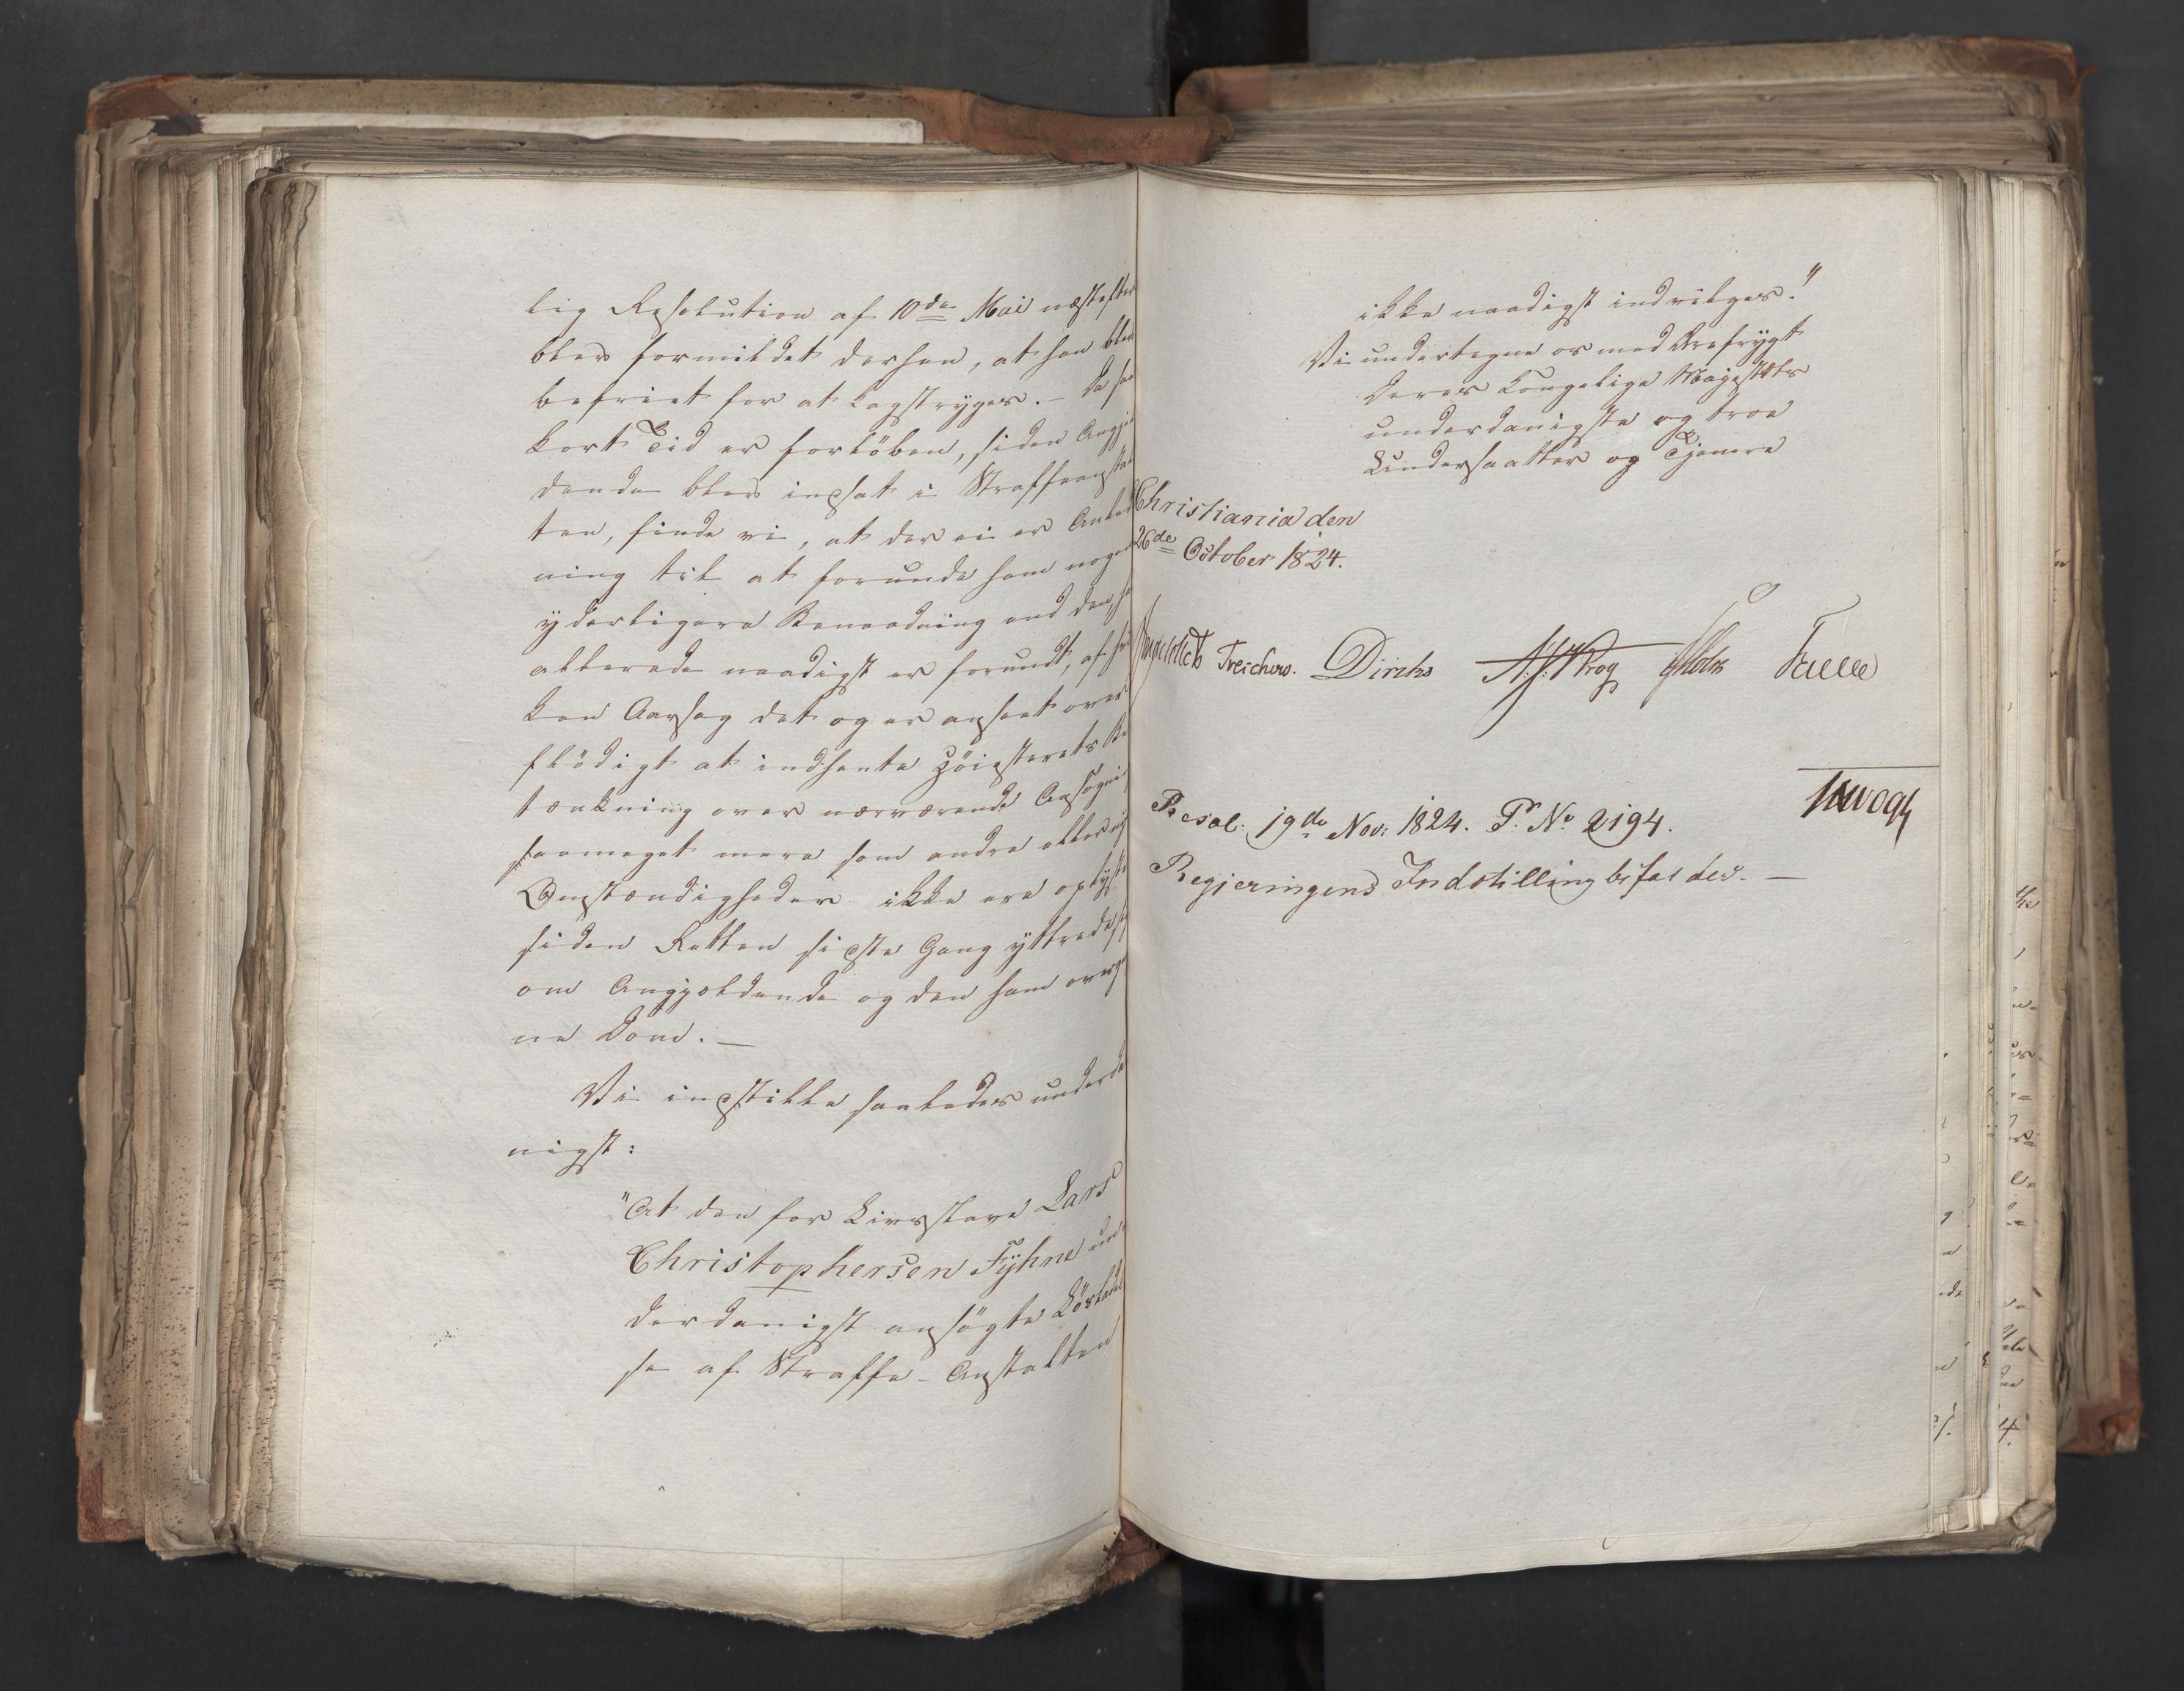 lig Resolution af 10de Mai næstefter
blev formildet derhen, at han blev
befriet for at kagstryges. – Da saa
kort Tid er forløben, siden Angjel
dende blev indsat i Straffeanstal
ten, finde vi, at der ei er Anled
ning til at forunde ham nogen
yderligere Benaadning end den, ha
allerede naadigst er forundt, af hvil
ken Aarsag det og er anseet over
flödigt at indhente Höiesterets Be
tænkning over nærværende Ansögni
saameget mere som andre eller nye
Omstændigheder ikke ere oplyste
siden Retten sidste Gang yttrede sig
om Angjeldende og den ham overga
ne Dom. –
Vi indstille saaledes underda
nigst:
"At den for Livsslave Lars
Christophersen Fÿhne un
derdanigst ansögte Lösladel
se af Straffe-Anstalten
ikke naadigst indvilges."
Vi undertegne os med Ærefrygt
Deres Kongelige Majestæts
underdanigste og troe
Undersaatter og Tjenere
Christiania den
26de October 1824.
Treschow. Diriks Krog Holst Fasting
Vogt
Resol. 19de Nov: 1824. P. No 2194.
Regjeringens Indstilling bifaldes. –